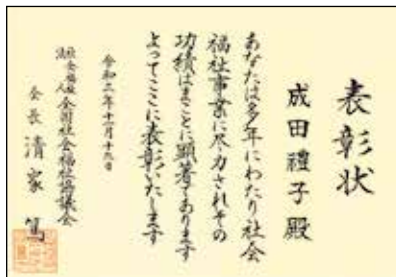 表彰状
成田禮子殿
あなたは多年にわたり社会
福祉事業に尽力されその
功績はまことに顕著であります
よってここに表彰いたします
令和三年十一月十九日
社会福祉法人 全国社会福祉協議会
会長 清家篤